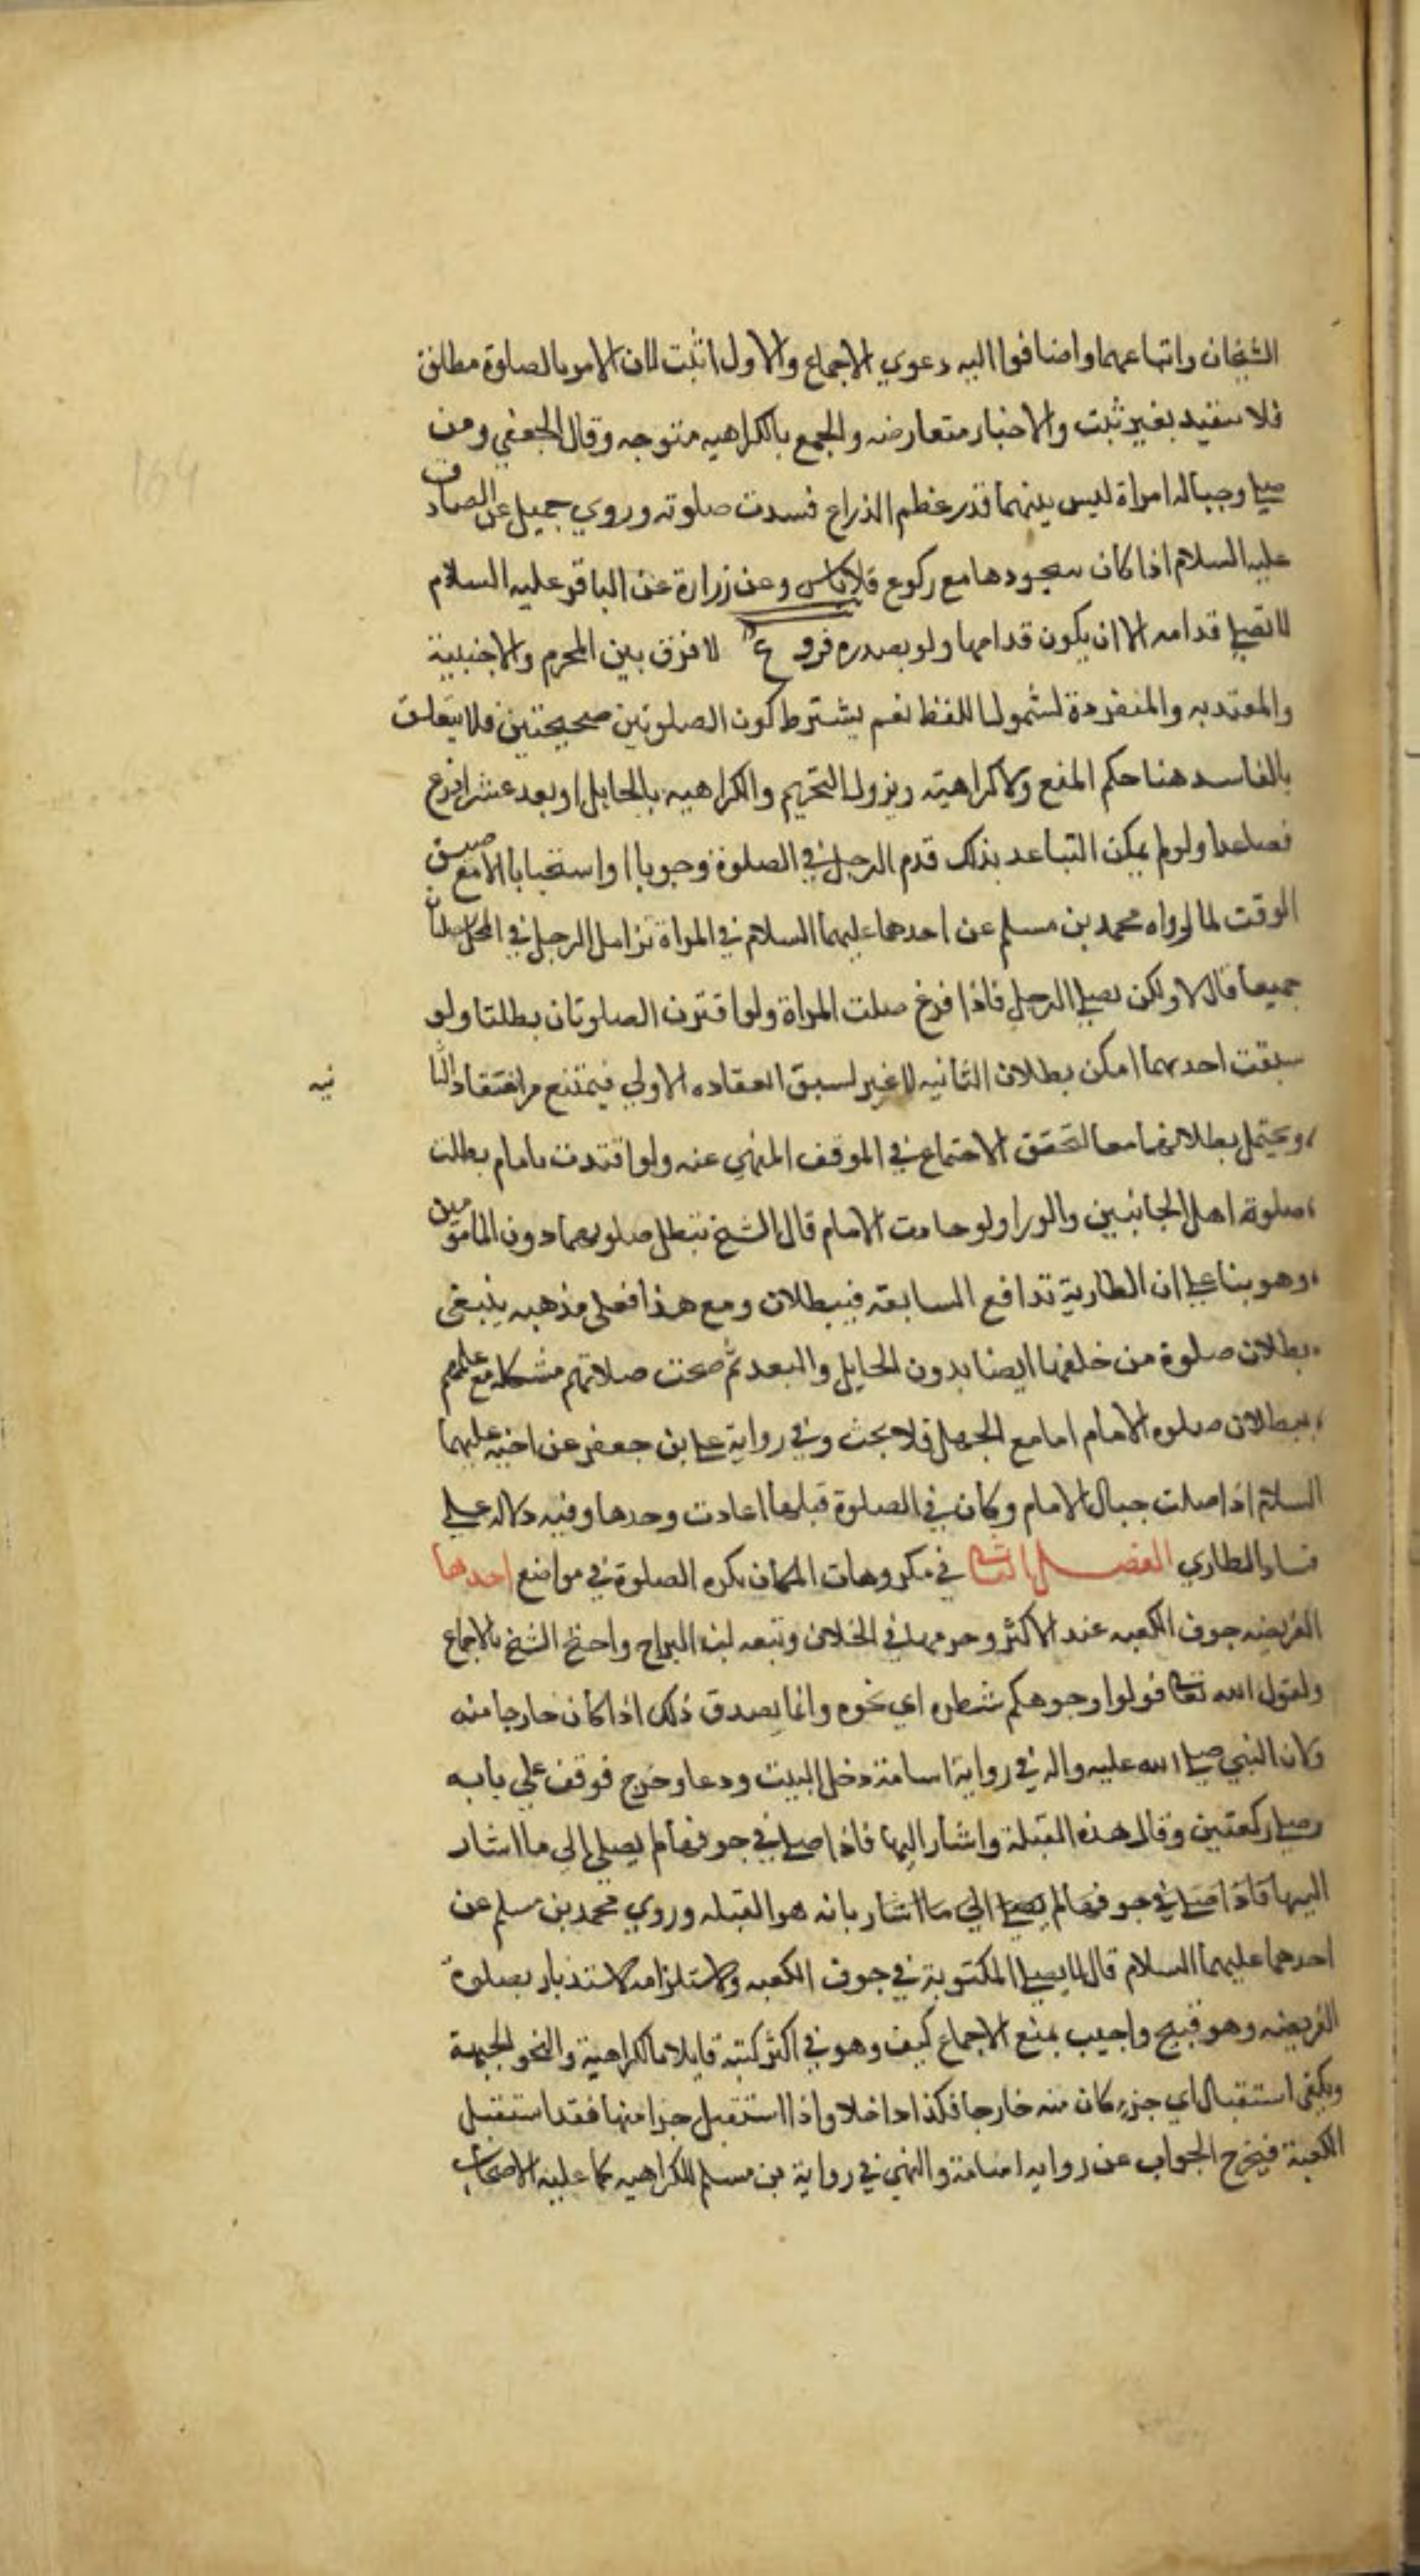 الشيخان واتباعهما واضافوا اليه دعوي الاجماع والاول اثبت لان الامر بالصلوة مطلق
فلا يتقيد بغير ثبت والاخبار متعارضه والجمع بالكراهيه متوجه وقال الجعفي ومن
صلي وحياله امراة ليس بينهما قدر عظم الذراع فسدت صلوته وروي جميل عن الصادق
عليه السلام اذا كان سجودها مع ركوع فلا باس وعن زرارة عن الباقر عليه السلام
لا تصلي قدامه الا ان يكون قدامها ولو بصدره فروع لا فرق بين المحرم والاجنبية
والمقتديه والمنفردة لشمول اللفظ نعم يشترط كون الصلوتين صحيحتين فلا يتعلق
بالفاسد هنا حكم المنع ولا كراهيته ويزول التحريم والكراهيه بالحايل او بعد عشر اذرع
فصاعدا ولو لم يمكن التباعد بذلك قدم الرجل في الصلوة وجوبا او استحبابا الا مع ضيق
الوقت لما رواه محمد بن مسلم عن احدهما عليهما السلام في المراة تزامل الرجل في المحمل يصليان
جميعا قال لا ولكن يصلي الرجل فاذا فرغ صلت المراة ولو اقترن الصلوتان بطلتا ولو
سبقت احديهما امكن بطلان الثانيه لا غير لسبق انعقاده الاولي فيمتنع من انعقاد الثا
نيه
ويحتمل بطلانهما معا لتحقق الاجتماع في الموقف المنهي عنه ولو اقتدت بامام بطلت
صلوة اهل الجانبين والورا ولو حاذت الامام قال الشيخ تبطل صلوتهما دون المامومين
وهو بنا علي ان الطارية تدافع السابقه فيبطلان ومع هذا فعلي مذهبه ينبغي
بطلان صلوة من خلفها ايضا بدون الحايل والبعد ثم صحت صلاتهم مشكله مع علمهم
ببطلان صلوه الامام اما مع الجهل فلا بحث وفي رواية علي بن جعفر عن اخيه عليهما
السلام اذا صلت حيال الامام وكان في الصلوة قبلها اعادت وحدها وفيه دلاله علي
فساد الطاري الفصل الثاني في مكروهات المكان يكره الصلوة في مواضع احدها
الفريضه جوف الكعبه عند الاكثر وحرمها في الخلاف وتبعه ابن البراج واحتج الشيخ بالاجماع
ولقول الله تعالي فولوا وجوهكم شطره اي نحوه وانما يصدق ذلك اذا كان خارجا منه
وكان النبي صلي الله عليه واله في رواية اسامة دخل البيت ودعا وخرج فوقف علي بابه
وصلي ركعتين وقال هذه القبلة واشار اليها فاذا صلي في جوفها لم يصلي الي ما اشار
اليها فاذا صلي في جوفها لم يصلي الي ما اشار بانه هو القبله وروي محمد بن مسلم عن
احدهما عليهما السلام قال لا يصلي المكتوبة في جوف الكعبه ولاستلزامه الاستدبار بصلوة
الفريضه وهو قبيح واجيب بمنع الاجماع كيف وهو في اكثر كتبه قايلا بالكراهية والنحو الجهة
ويكفي استقبال اي جزء كان منه خارجا فكذا داخلا واذا استقبل جزا منها فقد استقبل
الكعبة فيخرج الجواب عن روايه اسامة والنهي في رواية بن مسلم للكراهيه كما عليه الاصحاب